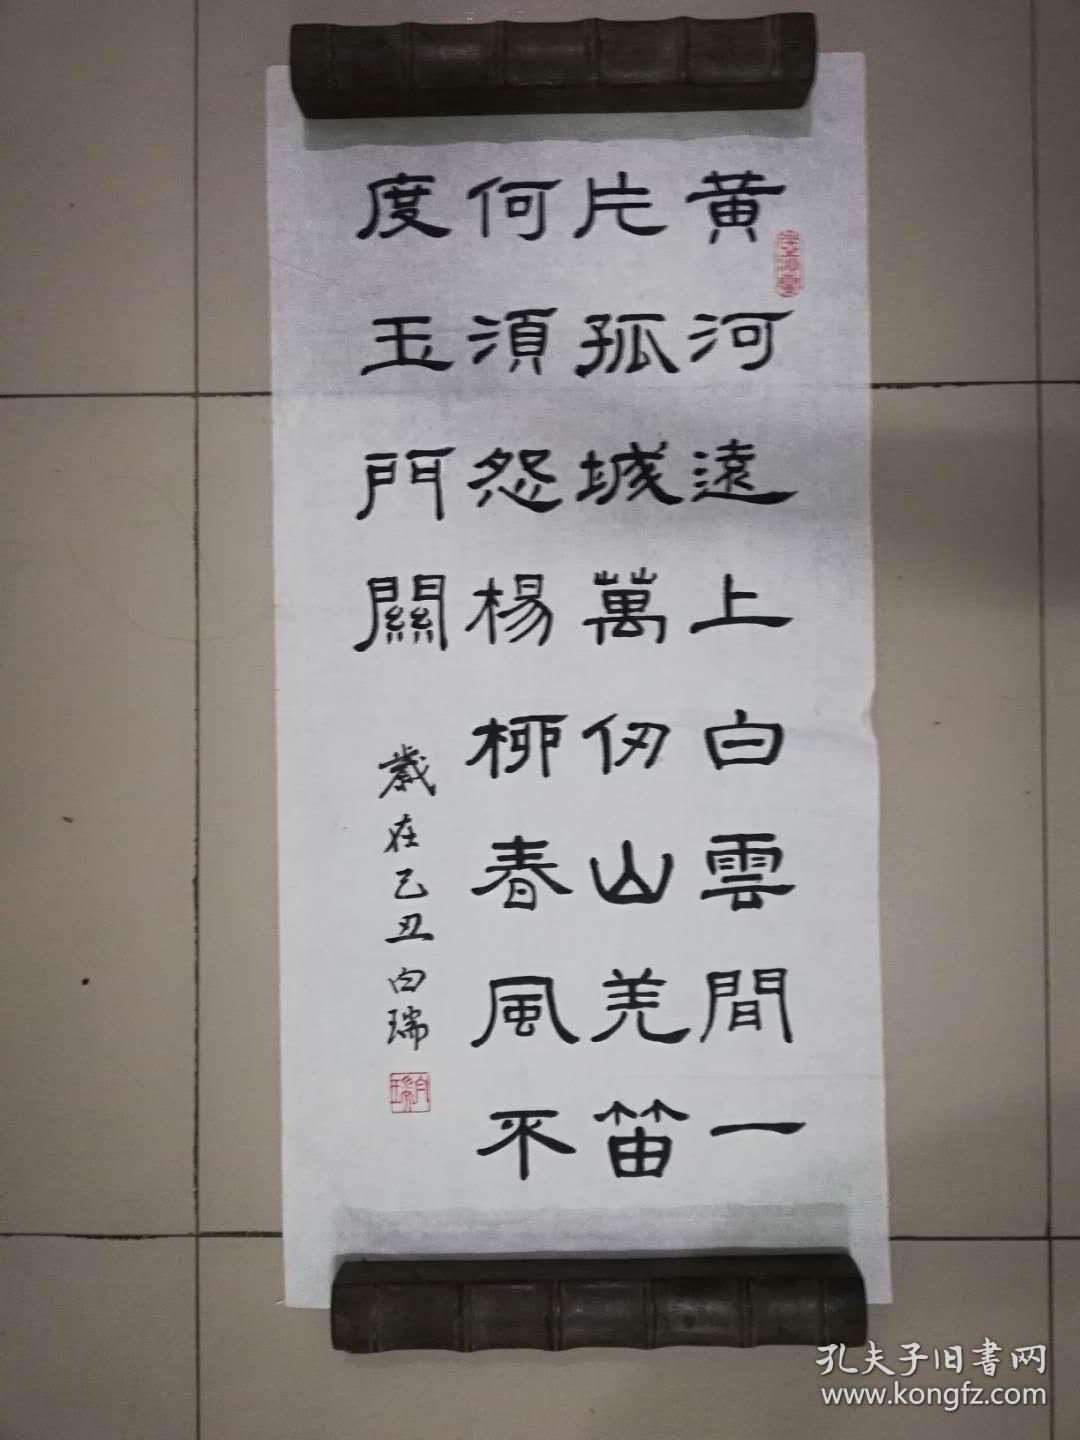 黄河遠上白雲間一
片孤城萬仞山羌笛
何須怨楊柳春風不
度玉門關
歲在己丑白瑞
白瑞
孔夫子旧書网
www.kongfz.com